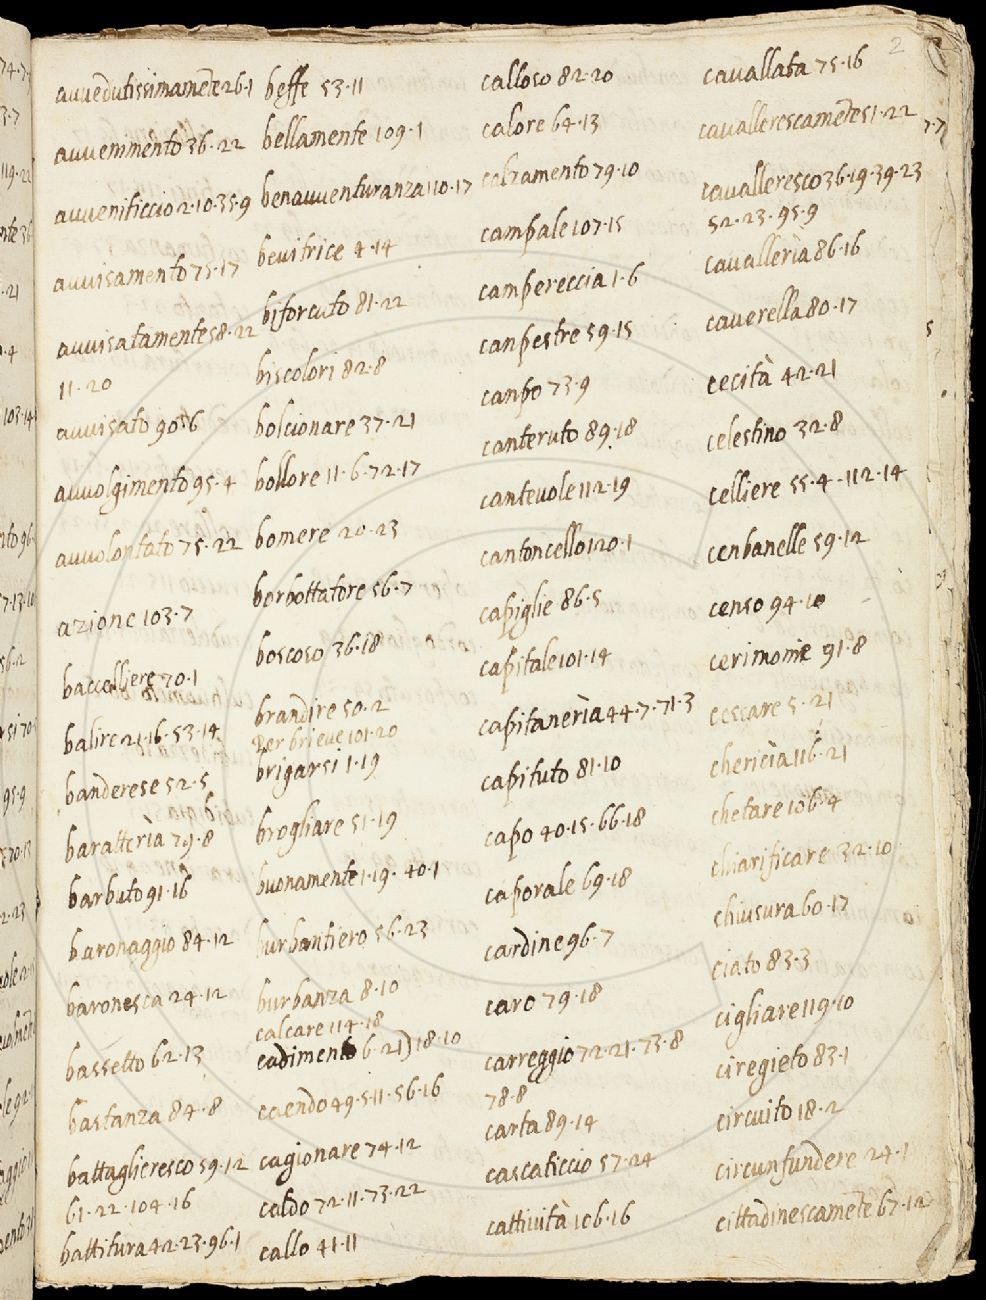 2
avvedutissimamēte 26·1
avvenimento 36·22
avveniticcio 2·10·35·9
avvisamento 75·17
avvisatamente 58·22
11·20
avvisato 90
avvolgimento 95·4
avvolontato 75·22
azione 103·7
baccelliere 70·1
balire 21·16·53·14
banderese 52·5
baratterìa 79·8
barbuto 91·16
baronaggio 84·12
baronesca 24·12
bassetto 62·13
bastanza 84·8
battaglieresco 59·12
61·22·104·16
battitura 42·23·96·1
beffe 53·11
bellamente 109·1
benavventuranza 110·17
bevitrice 4·14
biforcuto 81·22
biscolori 82·8
bolcionare 37·21
bollore 11·6·72·17
bomere 20·23
borbottatore 56·7
boscoso 36·18
brandire 50·2
Per brieve 101·20
brigarsi 1·19
brogliare 51·19
buonamente 1·19·40·1
burbantiero 56·23
burbanza 8·10
calcare 114·18
cadimento 6·21) 18·10
caendo 49·5·11·56·16
cagionare 74·12
caldo 72·11·73·22
callo 41·11
calloso 82·20
calore 64·13
calzamento 79·10
campale 107·15
campereccia 1·6
canpestre 59·15
canpo 73·9
canteruto 89·18
cantevole 112·19
cantoncello 120·1
capiglie 86·5
capitale 101·14
capitanerìa 44·7·71·3
capituto 81·10
capo 40·15·66·18
caporale 69·18
cardine 96·7
caro 79·18
carreggio 72·21·73·8
78·8
carta 89·14
cascaticcio 57·24
cattività 106·16
cavallata 75·16
cavallerescamēte 51·22
cavalleresco 36·19·39·23
52·23·95·9
cavallerìa 86·16
caverella 80·17
cecità 42·21
celestino 32·8
celliere 55·4·112·14
cenbanelle 59·12
censo 94·10
cerimonie 91·8
cescare 5·21
chericìa 116·21
chetare 106·4
chiarificare 32·10
chiusura 60·17
ciato 83·3
cigliare 119·10
ciregieto 83·1
circuito 18·2
circunfundere 24·1
cittadinescamēte 67·12